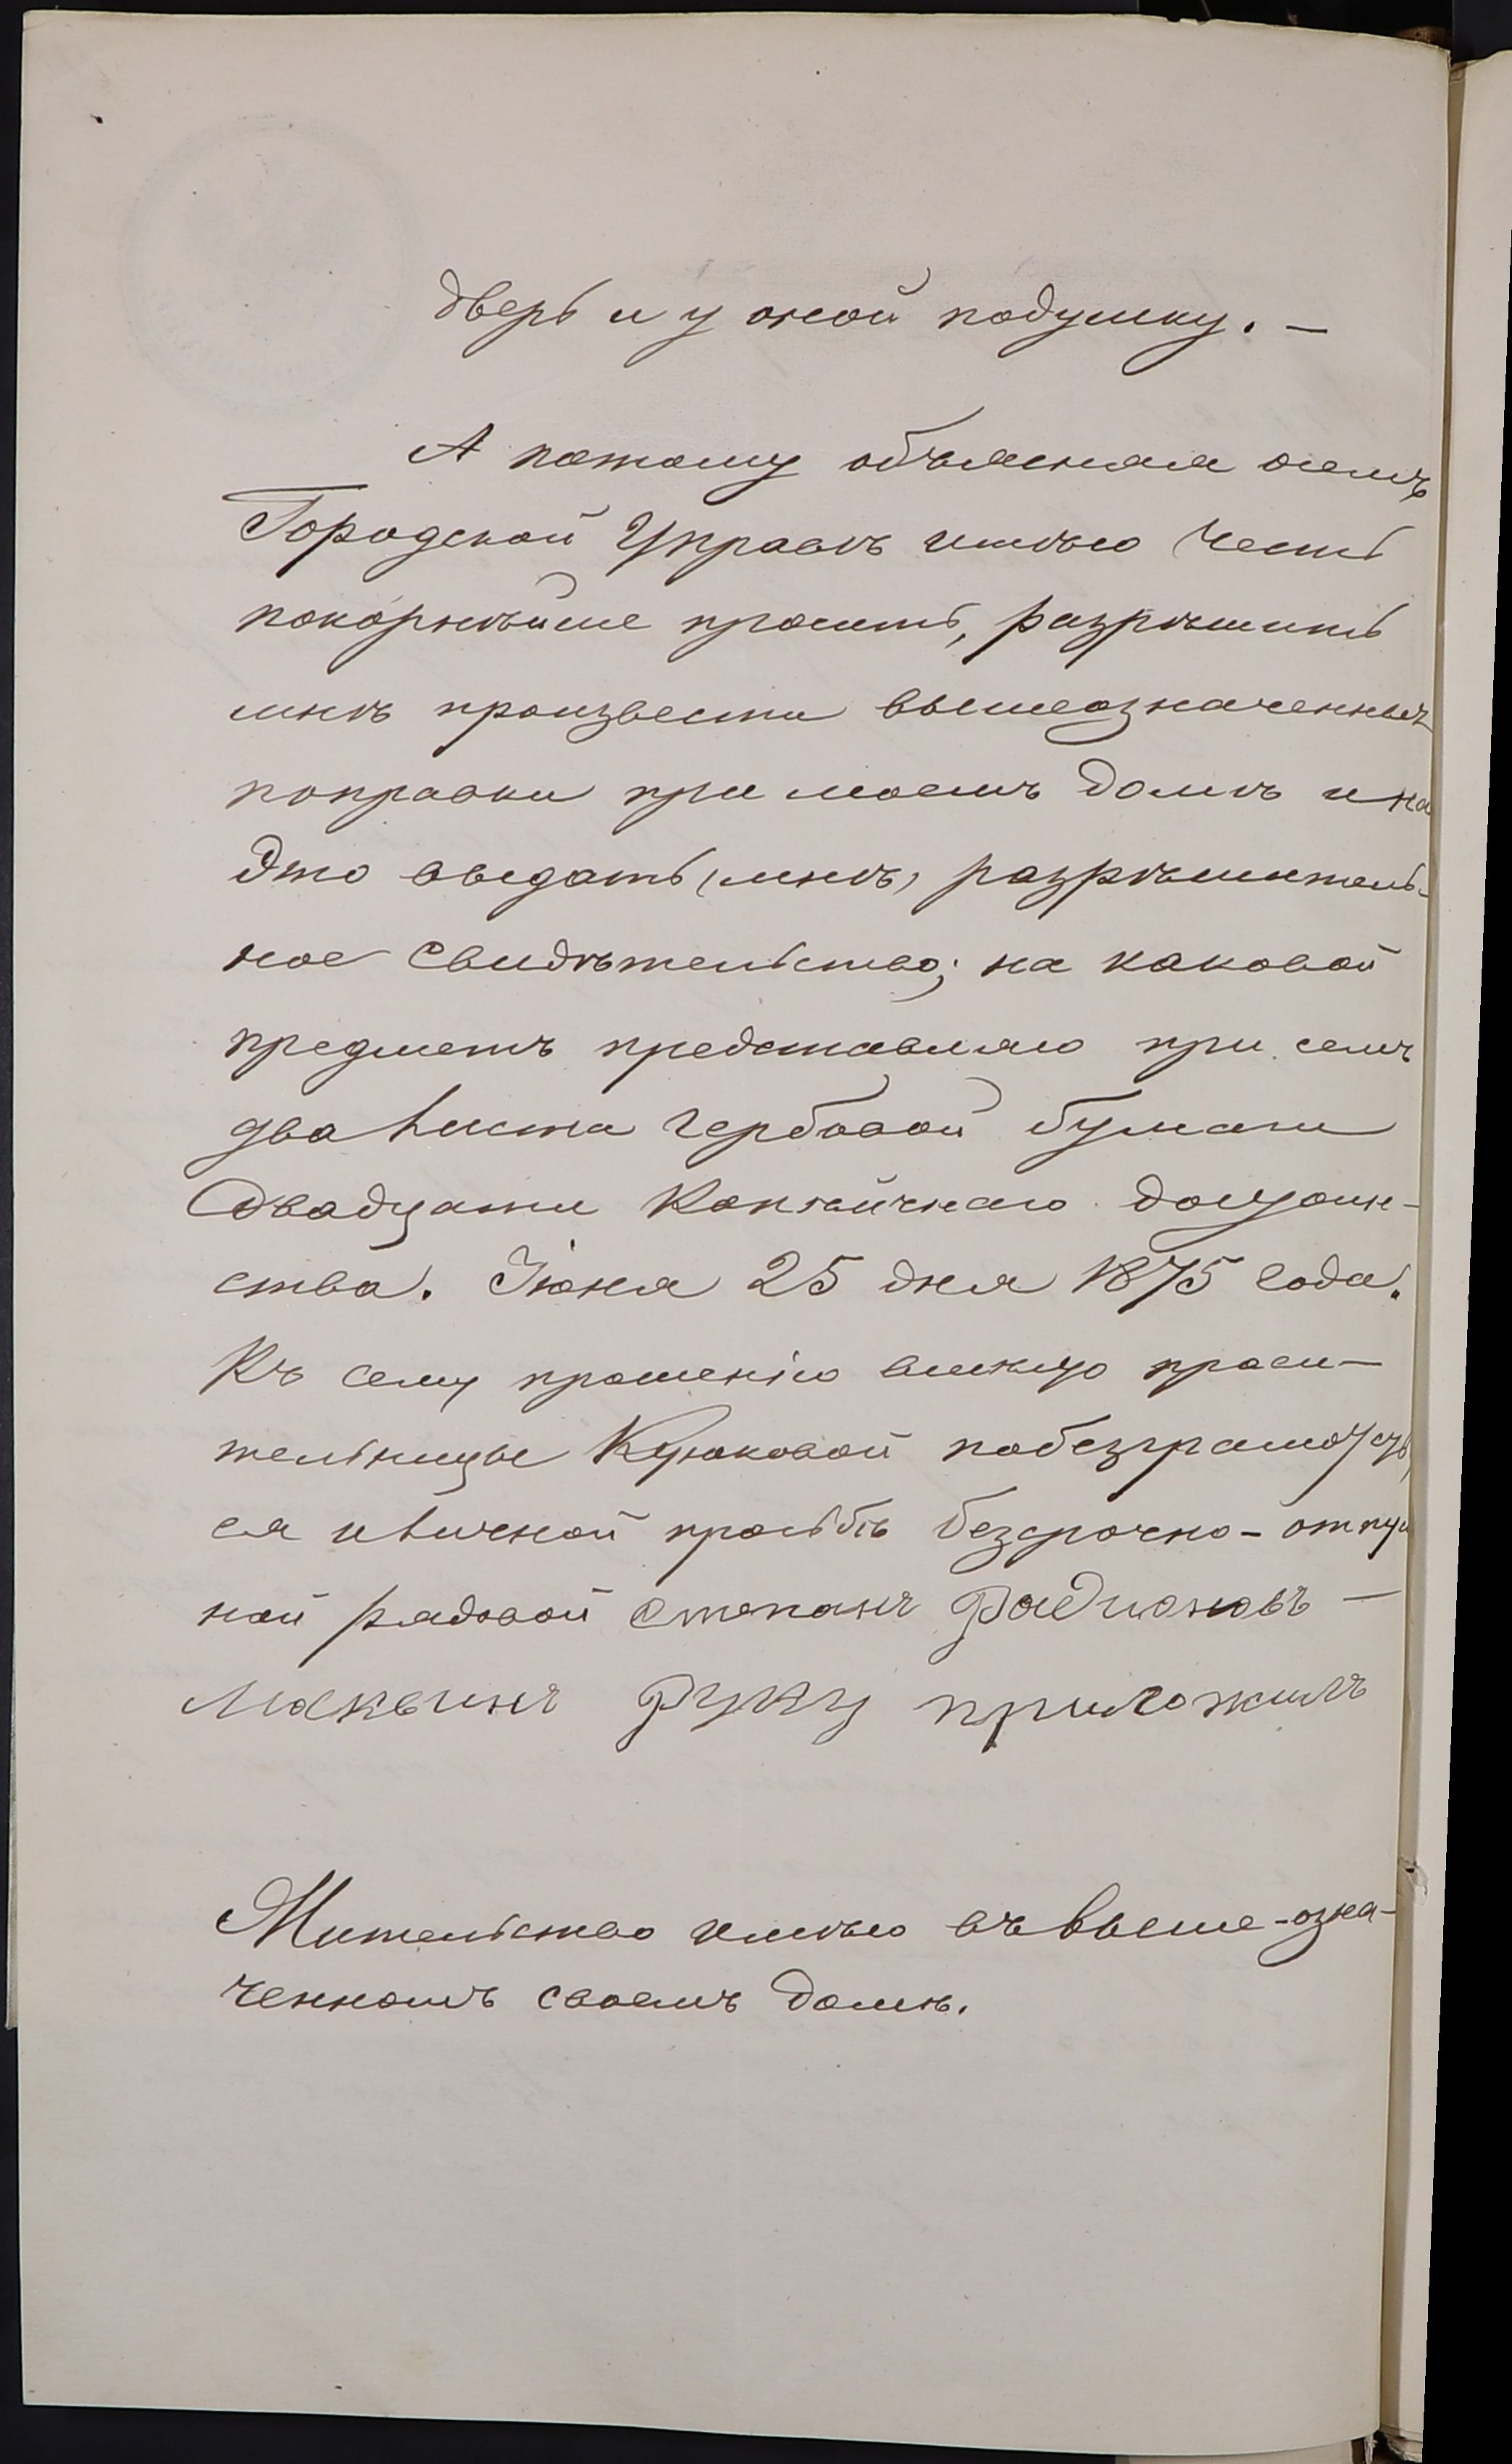 дверь и у оной подушку. —
А потому объясняя о семъ
Городской Управѣ имѣю честь
покорнѣйше просить, разрѣшить
мнѣ произвести вышеозначенныя
поправки при моемъ домѣ и на
это выдать (мнѣ) разрѣшитель-
ное свидѣтельство; на каковой
предметъ представляю при семъ
два листа гербовой бумаги
двадцати копѣйчнаго достоин-
ства. Іюня 25 дня 1875 года.
Къ сему прошенію вмѣсто проси-
тельницы Крюковой
ея и личной просьбѣ безсрочно-отпу
ной рядовой Степанъ Радионовъ —
Маквинъ руку приложилъ
Жительство имѣю въ выше-озна-
ченномъ своемъ домѣ.